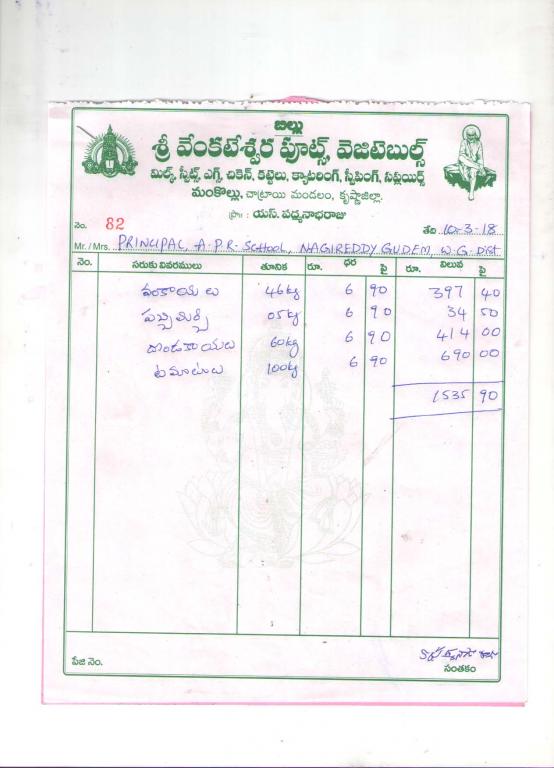 బిల్లు
శ్రీ వేంకటేశ్వర ఫూట్స్, వెజిటెబుల్స్
మిల్క్, స్వీట్స్, ఎగ్స్, చికెన్, కట్టెలు, క్యాటరింగ్, స్వీపింగ్, సప్లయిర్స్
మంకొల్లు, చాట్రాయి మండలం, కృష్ణాజిల్లా.
ప్రొ॥ : యస్. పద్మనాభరాజు
నెం. 82 తేది 10-3-18
Mr./Mrs. PRINCIPAL, A.P.R-SCHOOL, NAGIREDDYGUDEM, W.G-Dist
నెం. సరుకు వివరములు తూనిక రూ. ధర పై రూ. విలువ పై
వంకాయలు 46kg 6 90 397 40
పచ్చిమిర్చి 05kg 6 90 34 50
దొండకాయలు 60kg 6 90 414 00
టమాటాలు 100kg 6 90 690 00
1535 90
పేజి నెం. సంతకం